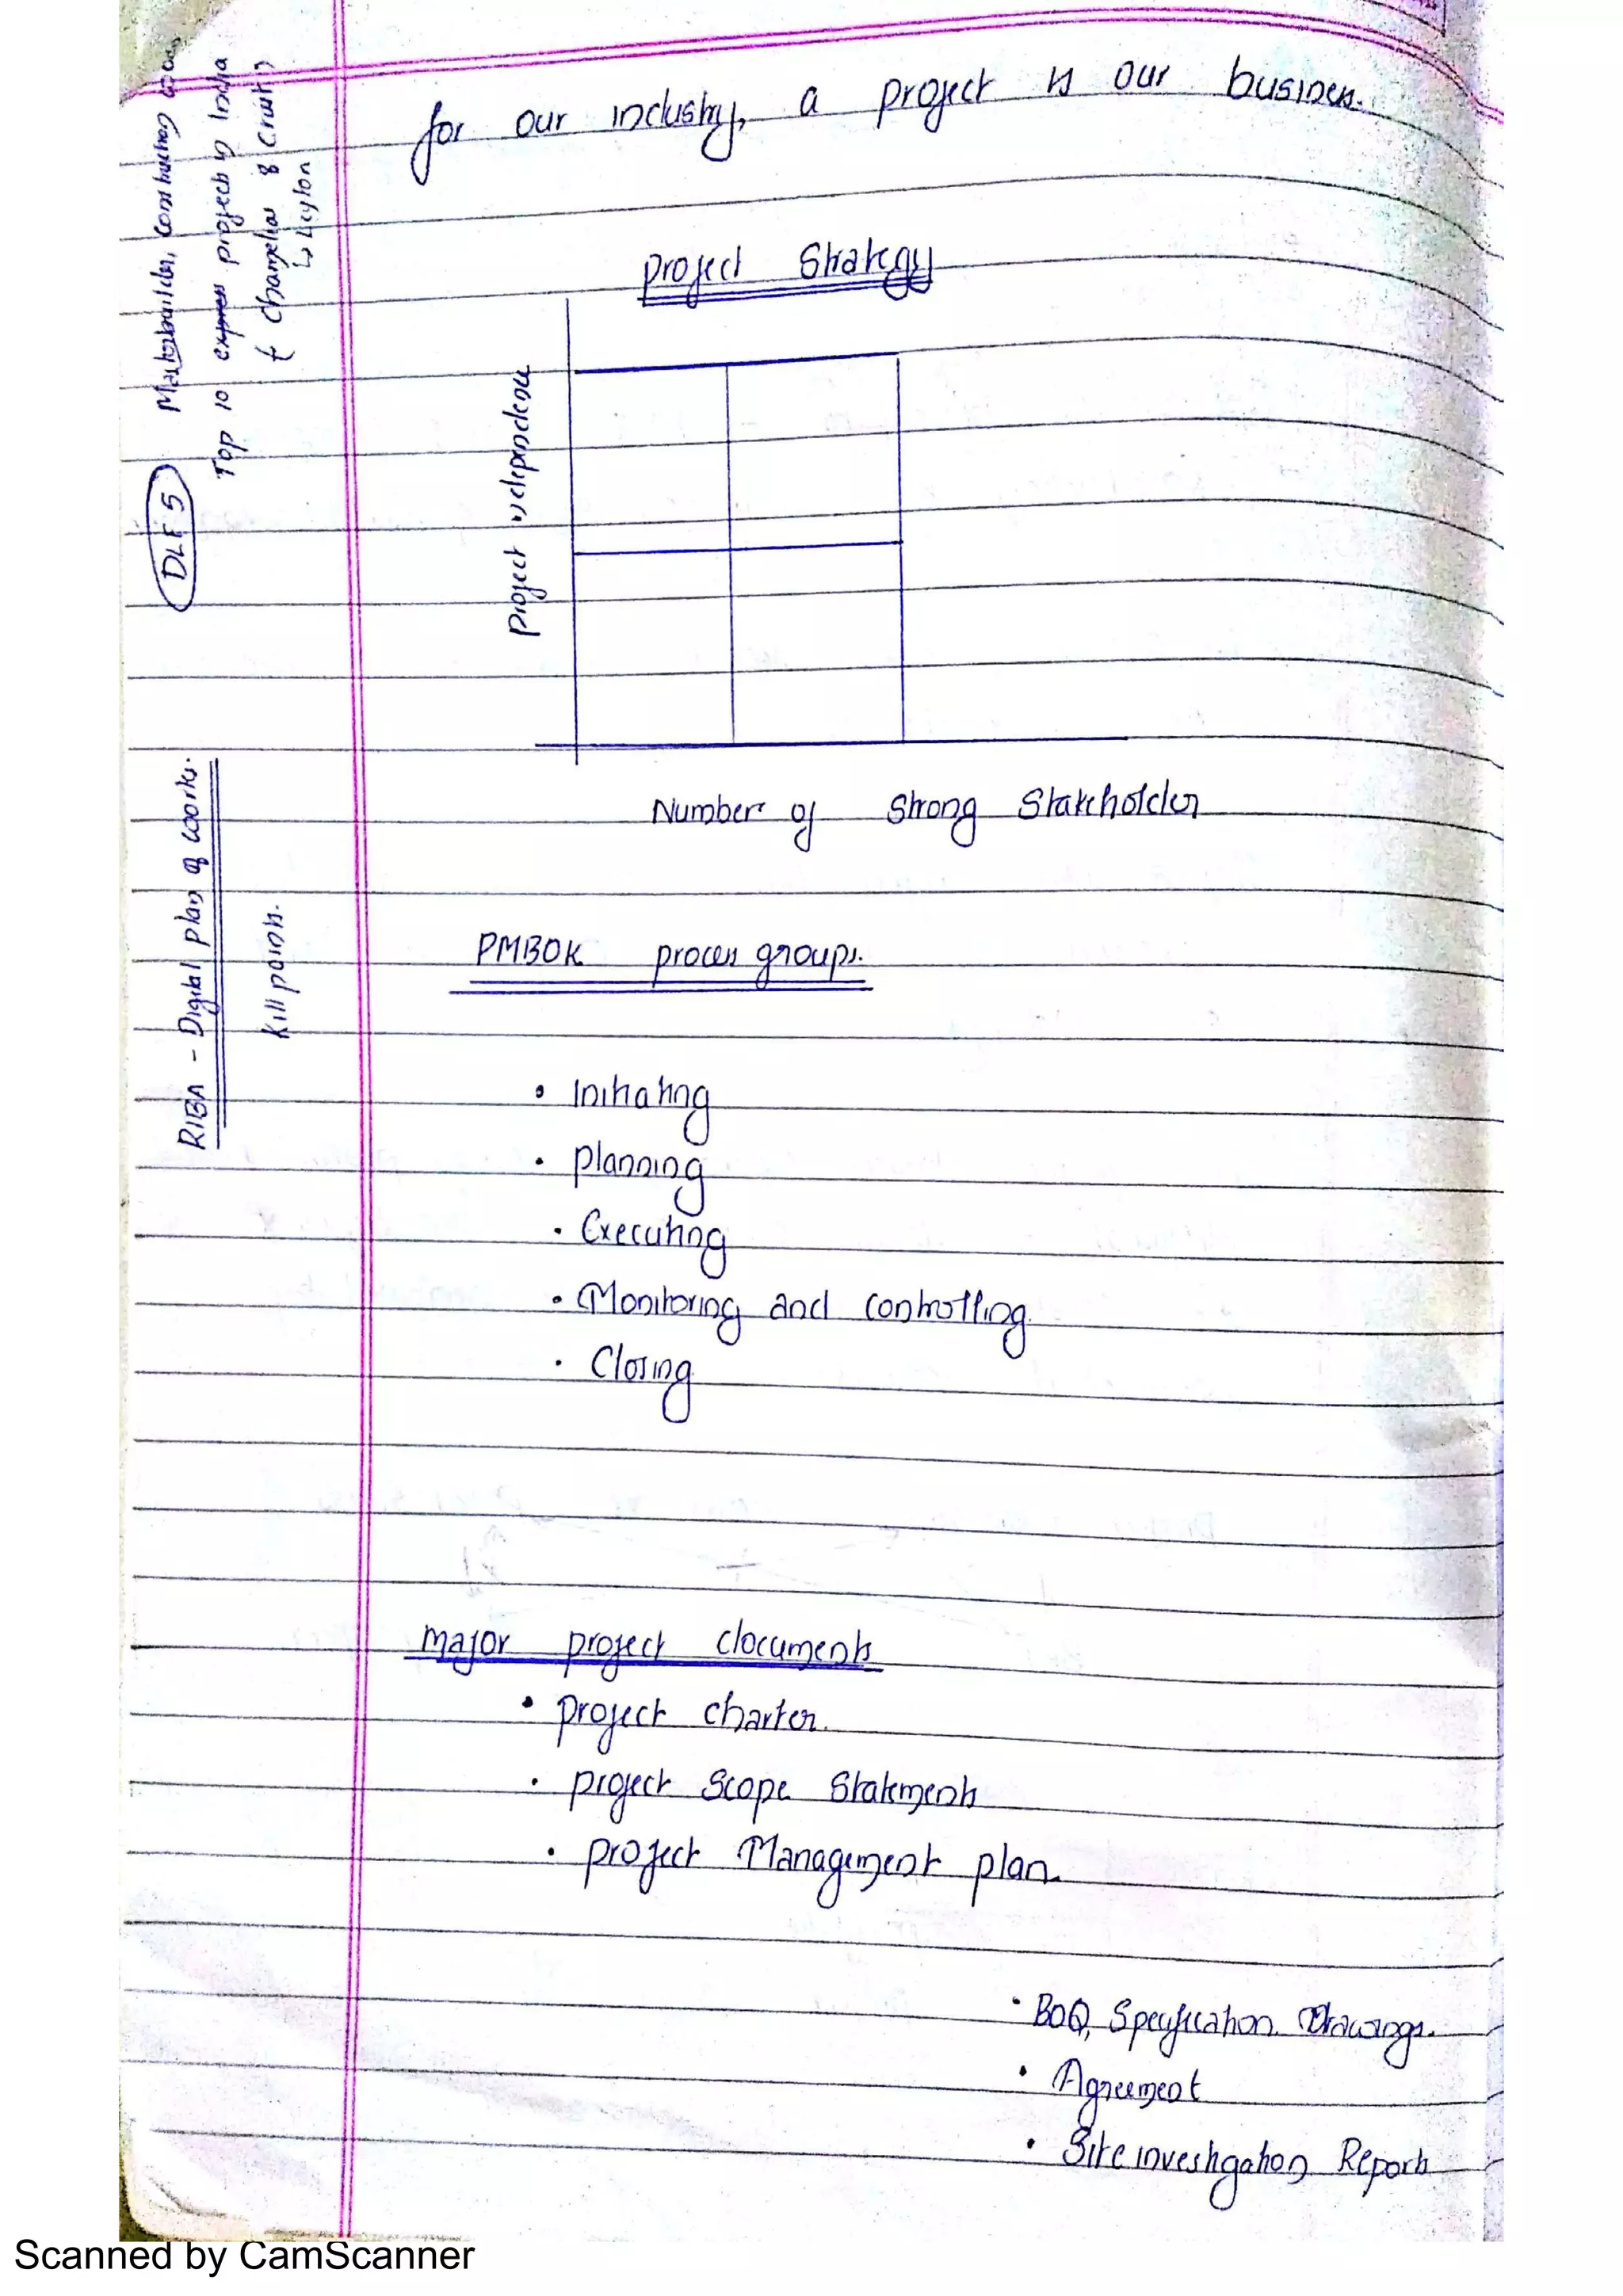 for our industry, a project is our business.
Project Strategy
Project independence
Number of Strong Stakeholders
PMBOK process groups.
• Initiating
• Planning
• Executing
• Monitoring and controlling
• Closing
Major project documents
• Project charter.
• Project Scope Statements
• Project Management plan.
• BOQ, Specification. Drawings.
• Agreement
• Site investigation Reports
DLF 5
Masterbuilder, Construction
Top 10 projects in India
&
↳ Leyton
RIBA - Digital plan of works.
Kill points.
Scanned by CamScanner